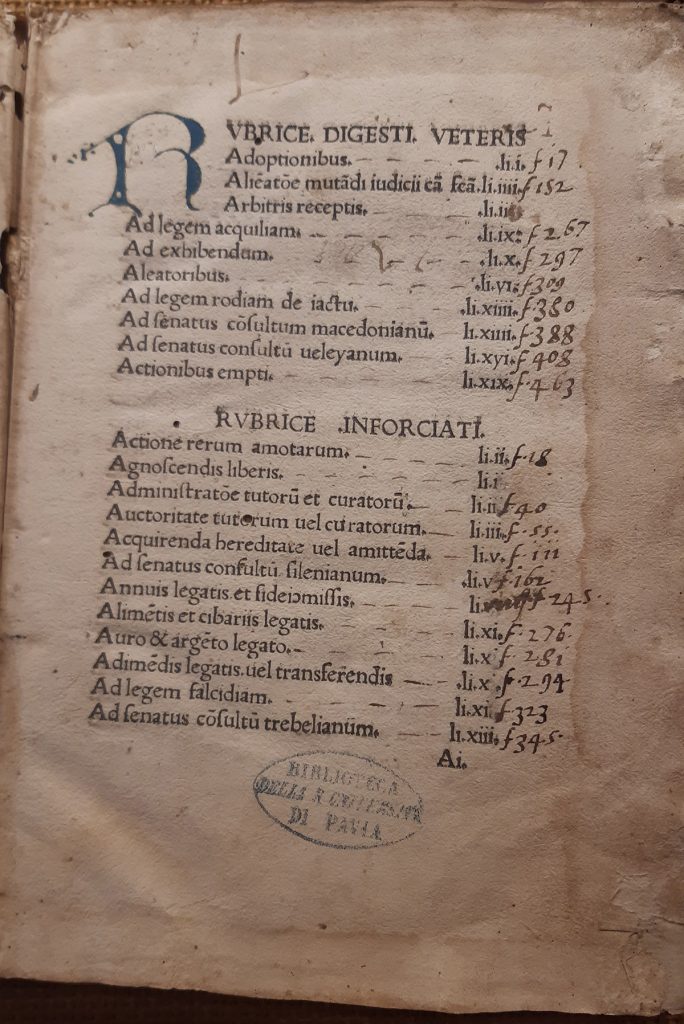 RVBRICE. DIGESTI. VETERIS
Adoptionibus. .li.i. f 17
Aliẽatõe mutãdi iudicii cã fcã.li.iiii. f 152
Arbitris receptis.
Ad legem acquiliam. .li.ix. f 267
Ad exhibendum. .li.x. f 297
Aleatoribus. .li.xi. f 309
Ad legem rodiam de iactu. .li.xiiii. f 380
Ad senatus cõsultum macedonianũ. li.xiiii. f 388
Ad senatus consultũ ueleyanum. li.xyi. f 408
Actionibus empti. li.xix. f 463
RVBRICE .INFORCIATI.
Actione rerum amotarum. li.ii. f 18
Agnoscendis liberis. li.i
Administratõe tutorũ et curatorũ. f 40
Auctoritate tutorum uel curatorum. li.iii. f. 55.
Acquirenda hereditate uel amittẽda. li.v. f. 111
Ad senatus consultũ silenianum. .li.v f 162
Annuis legatis et fideicõmissis. f 245.
Alimẽtis et cibariis legatis. li.xi. f. 276
Auro & argẽto legato. li.x f. 281
Adimẽdis legatis.uel transferendis .li.x f. 294
Ad legem falcidiam. li.xi f 323
Ad senatus cõsultũ trebelianũm. li.xiii. f 345.
Ai.
BIBLIOTECA
DELLA R UNIVERSITÀ
DI PAVIA